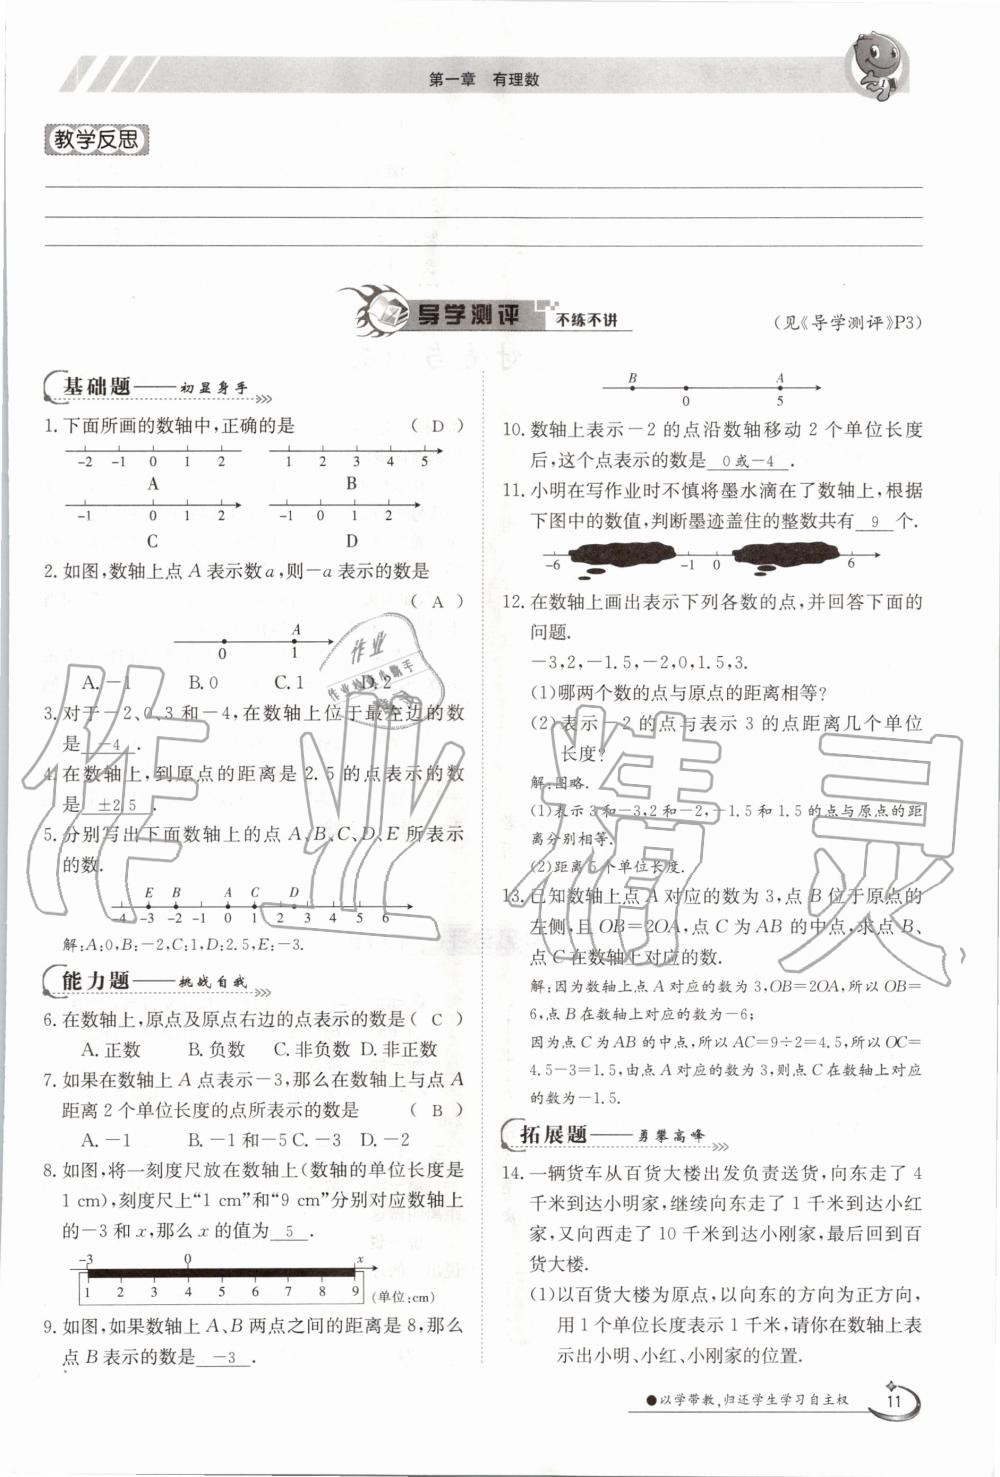 第一章 有理数
教学反思
导学测评 不练不讲
(见《导学测评》P3)
基础题——初显身手
1.下面所画的数轴中,正确的是 ( D )
-2 -1 0 1 2
1 2 3 4 5
A B
-1 0 1 2
-1 0 1 2
C D
2.如图,数轴上点A表示数a,则-a表示的数是
( A )
A
0 1
A.-1 B.0 C.1 D.2
3.对于-2、0、3和-4,在数轴上位于最左边的数
是 -4 .
4.在数轴上,到原点的距离是2.5的点表示的数
是 ±2.5 .
5.分别写出下面数轴上的点A、B、C、D、E所表示
的数.
E B A C D
-4 -3 -2 -1 0 1 2 3 4 5 6
解:A:0,B:-2,C:1,D:2.5,E:-3.
能力题——挑战自我
6.在数轴上,原点及原点右边的点表示的数是( C )
A.正数 B.负数 C.非负数 D.非正数
7.如果在数轴上A点表示-3,那么在数轴上与点A
距离2个单位长度的点所表示的数是 ( B )
A.-1 B.-1和-5 C.-3 D.-2
8.如图,将一刻度尺放在数轴上(数轴的单位长度是
1 cm),刻度尺上“1 cm”和“9 cm”分别对应数轴上
的-3和x,那么x的值为 5 .
-3 0 x
1 2 3 4 5 6 7 8 9 (单位:cm)
9.如图,如果数轴上A、B两点之间的距离是8,那么
点B表示的数是 -3 .
B A
0 5
10.数轴上表示-2的点沿数轴移动2个单位长度
后,这个点表示的数是 0或-4 .
11.小明在写作业时不慎将墨水滴在了数轴上,根据
下图中的数值,判断墨迹盖住的整数共有 9 个.
-6 -1 0 6
12.在数轴上画出表示下列各数的点,并回答下面的
问题.
-3,2,-1.5,-2,0,1.5,3.
(1)哪两个数的点与原点的距离相等?
(2)表示-2的点与表示3的点距离几个单位
长度?
解:图略.
(1)表示3和-3,2和-2,-1.5和1.5的点与原点的距
离分别相等.
(2)距离5个单位长度.
13.已知数轴上点A对应的数为3,点B位于原点的
左侧,且OB=2OA,点C为AB的中点,求点B、
点C在数轴上对应的数.
解:因为数轴上点A对应的数为3,OB=2OA,所以OB=
6,点B在数轴上对应的数为-6;
因为点C为AB的中点,所以AC=9÷2=4.5,所以OC=
4.5-3=1.5,由点A对应的数为3,则点C在数轴上对应
的数为-1.5.
拓展题——勇攀高峰
14.一辆货车从百货大楼出发负责送货,向东走了4
千米到达小明家,继续向东走了1千米到达小红
家,又向西走了10千米到达小刚家,最后回到百
货大楼.
(1)以百货大楼为原点,以向东的方向为正方向,
用1个单位长度表示1千米,请你在数轴上表
示出小明、小红、小刚家的位置.
●以学带教,归还学生学习自主权 11
作业精灵
作业
作业检查小助手